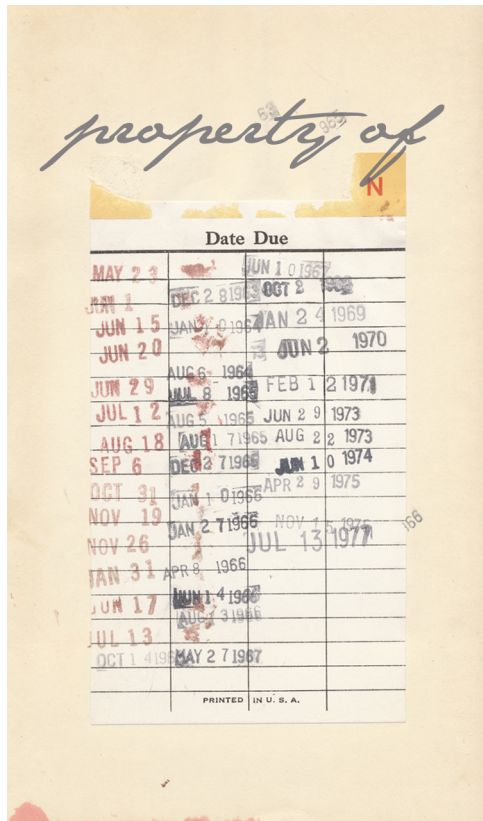 property of
N
Date Due
MAY 23
JUN 1
JUN 15
JUN 20
JUN 29
JUL 12
AUG 18
SEP 6
OCT 31
NOV 19
NOV 26
JAN 31
JUN 17
JUL 13
OCT 1 4 196
DEC 2 8 1963
JAN 1 0 1964
AUG 6 1964
JUL 8 1965
AUG 5 1965
AUG 1 7 1965
DEC 2 7 1965
JAN 1 0 1966
JAN 2 7 1966
APR 8 1966
JUN 1 4 1966
AUG 3 1966
MAY 2 7 1967
JUN 1 0 1967
OCT 2
JAN 2 4 1969
JUN 2 1970
FEB 1 2 1971
JUN 2 9 1973
AUG 2 2 1973
JUN 1 0 1974
APR 2 9 1975
NOV 1 5 1976
JUL 13 1977
PRINTED IN U. S. A.